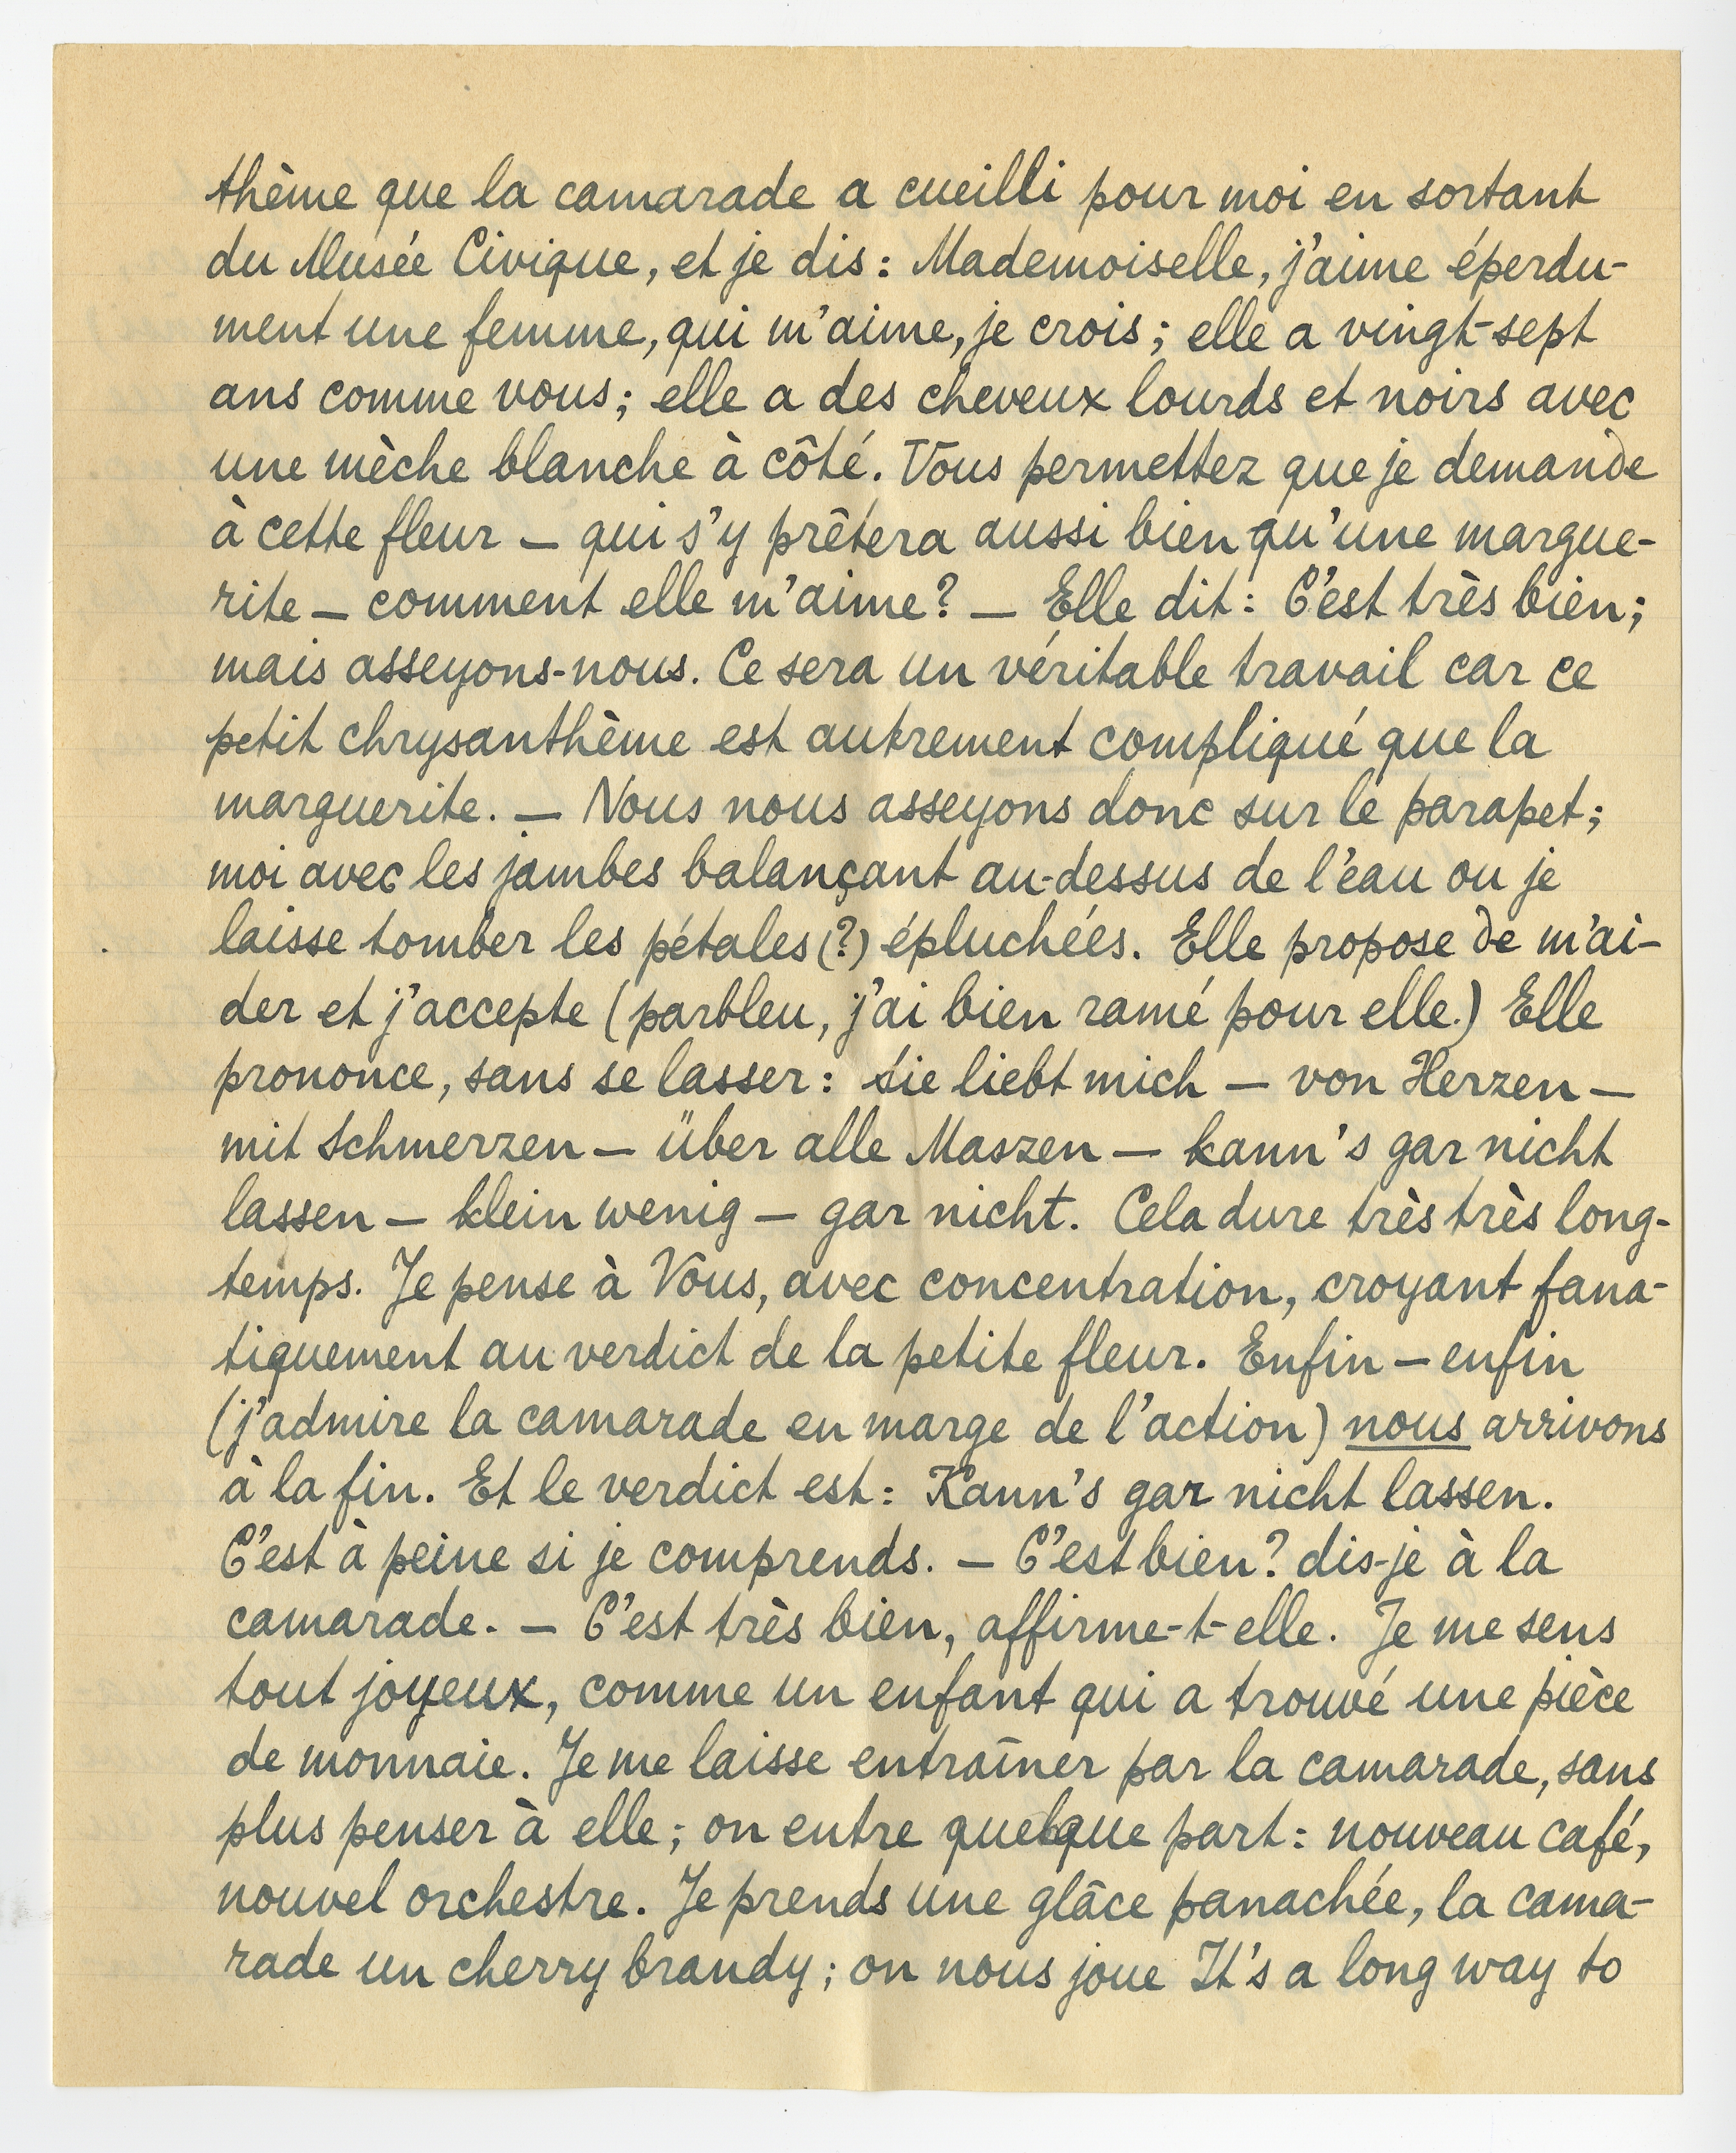 thème que la camarade a cueilli pour moi en sortant
du Musée Civique, et je dis : Mademoiselle, j'aime éperdu-
ment une femme, qui m'aime, je crois ; elle a vingt-sept
ans comme vous ; elle a des cheveux lourds et noirs avec
une mèche blanche à côté. Vous permettez que je demande
à cette fleur — qui s'y prêtera aussi bien qu'une margue-
rite — comment elle m'aime ? — Elle dit : C'est très bien ;
mais asseyons-nous. Ce sera un véritable travail car ce
petit chrysanthème est autrement compliqué que la
marguerite. — Nous nous asseyons donc sur le parapet ;
moi avec les jambes balançant au-dessus de l'eau ou je
laisse tomber les pétales (?) épluchées. Elle propose de m'ai-
der et j'accepte (parbleu, j'ai bien ramé pour elle.) Elle
prononce, sans se lasser : Sie liebt mich — von Herzen —
mit Schmerzen — über alle Maszen — kann's gar nicht
lassen — klein wenig — gar nicht. Cela dure très très long-
temps. Je pense à Vous, avec concentration, croyant fana-
tiquement au verdict de la petite fleur. Enfin — enfin
(j'admire la camarade en marge de l'action) nous arrivons
à la fin. Et le verdict est : Kann's gar nicht lassen.
C'est à peine si je comprends. — C'est bien ? dis-je à la
camarade. — C'est très bien, affirme-t-elle. Je me sens
tout joyeux, comme un enfant qui a trouvé une pièce
de monnaie. Je me laisse entraîner par la camarade, sans
plus penser à elle ; on entre quelque part : nouveau café,
nouvel orchestre. Je prends une glâce panachée, la cama-
rade un cherry brandy ; on nous joue It's a long way to